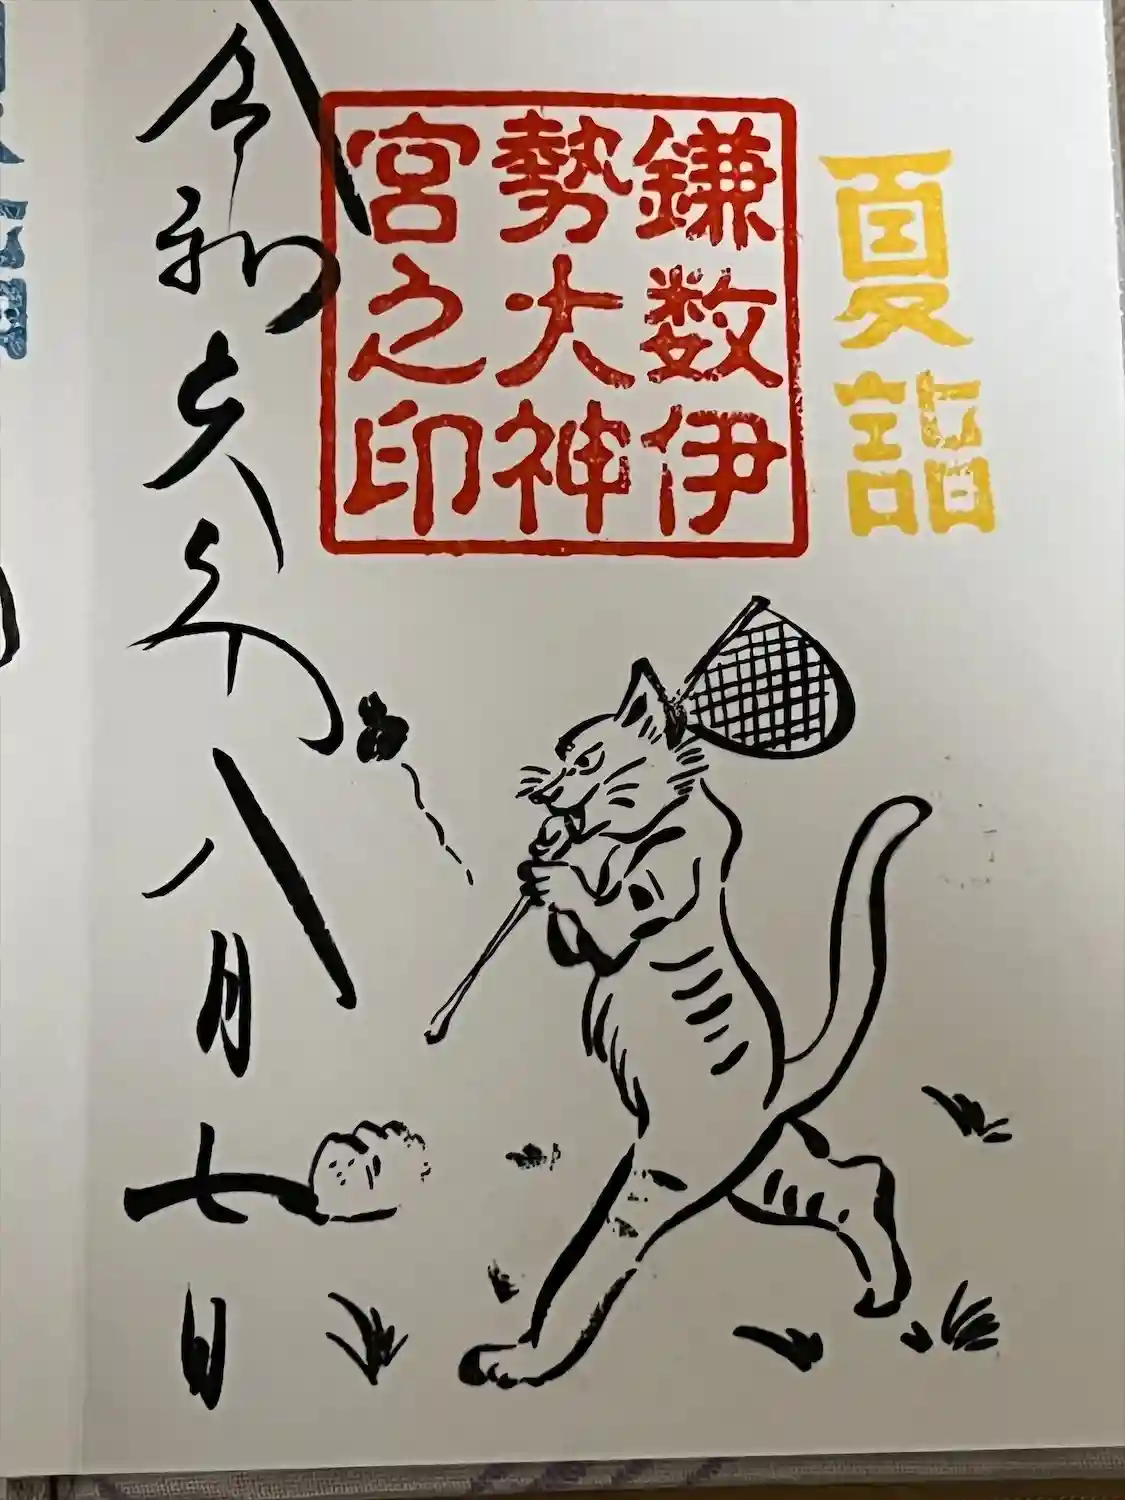 夏詣
鎌数伊
勢大神
宮之印
令和六年八月七日